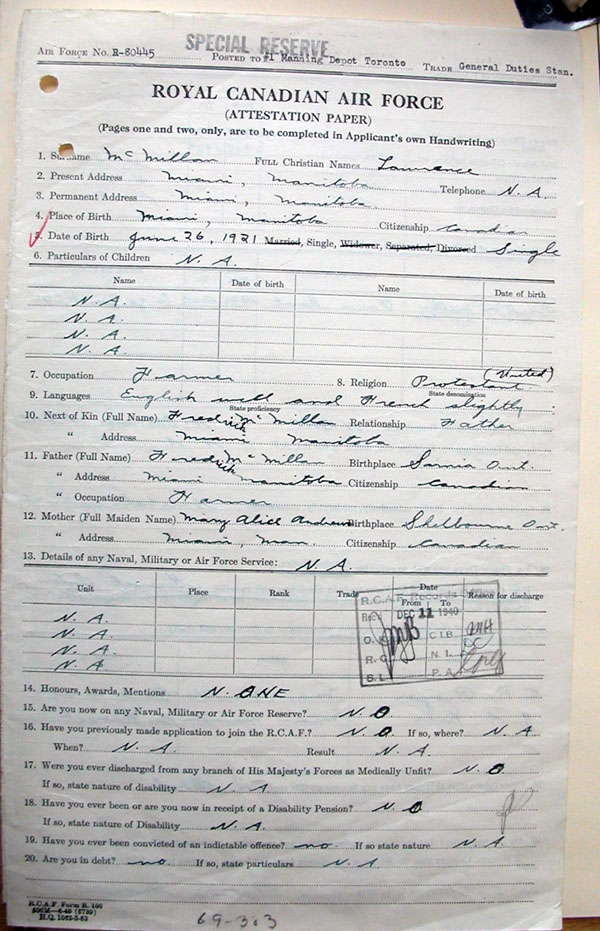 SPECIAL RESERVE
AIR FORCE NO. R-80445 POSTED TO #1 Manning Depot Toronto TRADE General Duties Stan.
ROYAL CANADIAN AIR FORCE
(ATTESTATION PAPER)
(Pages one and two, only, are to be completed in Applicant's own Handwriting)
1. Surname McMillan FULL CHRISTIAN NAMES Lawrence
2. Present Address Miami, Manitoba Telephone N.A.
3. Permanent Address Miami, Manitoba
4. Place of Birth Miami, Manitoba Citizenship Canadian
5. Date of Birth June 26, 1921 Married, Single, Widower, Separated, Divorced Single
6. Particulars of Children N.A.
Name Date of birth Name Date of birth
N.A.
N.A.
N.A.
N.A.
7. Occupation Farmer 8. Religion Protestant (United)
State denomination
9. Languages English well and French slightly
State proficiency
10. Next of Kin (Full Name) Fredrick McMillan Relationship Father
" Address Miami Manitoba
11. Father (Full Name) Fredrick McMillan Birthplace Sarnia Ont.
" Address Miami Manitoba Citizenship Canadian
" Occupation Farmer
12. Mother (Full Maiden Name) Mary Alice Andrew Birthplace Shelbourne Ont.
" Address Miami, Man. Citizenship Canadian
13. Details of any Naval, Military or Air Force Service: N.A.
Unit Place Rank Trade Date Reason for discharge
From To
N.A.
N.A.
N.A.
N.A.
R.C.A.F. Records
DEC 11 1940
C.I.B.
R.C. N.I.
S.L. P.A.
14. Honours, Awards, Mentions NONE
15. Are you now on any Naval, Military or Air Force Reserve? NO
16. Have you previously made application to join the R.C.A.F.? NO If so, where? N.A.
When? N.A. Result N.A.
17. Were you ever discharged from any branch of His Majesty's Forces as Medically Unfit? NO
If so, state nature of disability N.A.
18. Have you ever been or are you now in receipt of a Disability Pension? NO
If so, state nature of Disability N.A.
19. Have you ever been convicted of an indictable offence? no If so state nature N.A.
20. Are you in debt? no. If so, state particulars N.A.
R.C.A.F. Form R. 100
H.Q. 1062-3-63
69-303